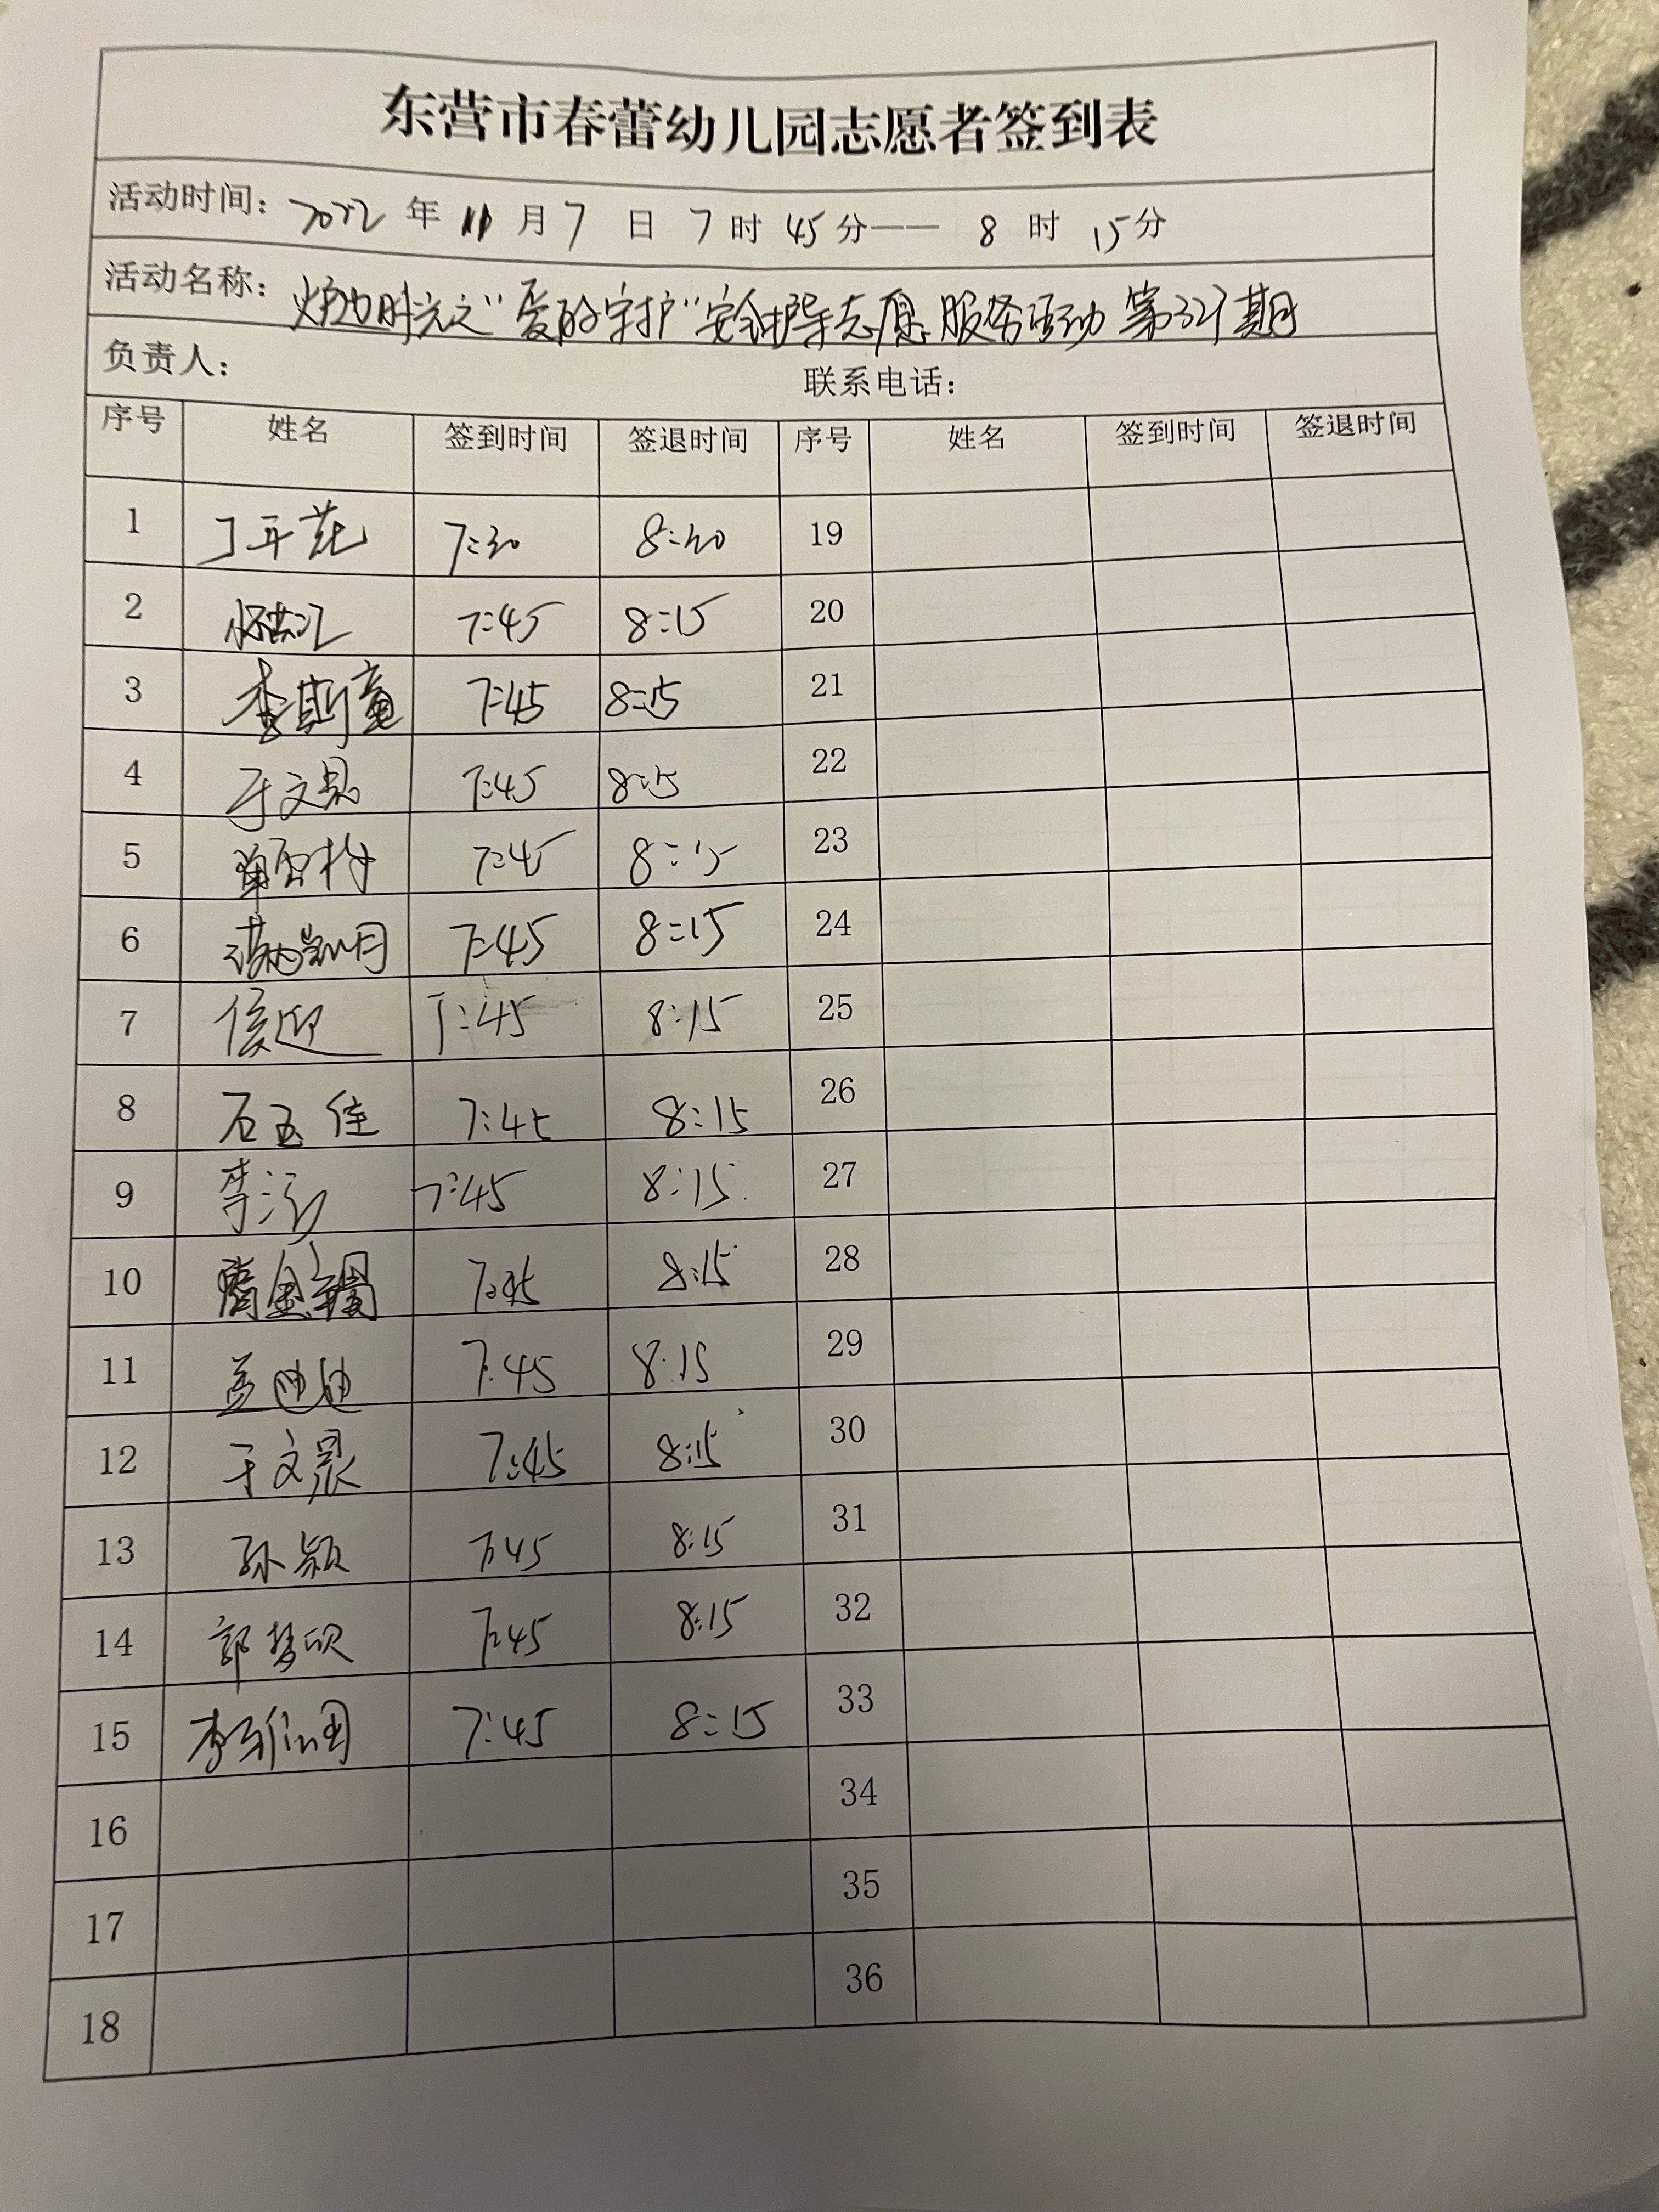 东营市春蕾幼儿园志愿者签到表
活动时间: 2022 年 11 月 7 日 7 时 45 分—— 8 时 15 分
活动名称: 时光之"爱的守护"安全护导志愿服务活动 第 期
负责人: 联系电话:
序号 姓名 签到时间 签退时间 序号 姓名 签到时间 签退时间
1 7:30 8:30 19
2 7:45 8:15 20
3 李斯童 7:45 8:15 21
4 于文 7:45 8:15 22
5 7:45 8:15 23
6 7:45 8:15 24
7 侯迎 7:45 8:15 25
8 石玉佳 7:45 8:15 26
9 李 7:45 8:15 27
10 7:45 8:15 28
11 孟迪迪 7:45 8:15 29
12 于文晨 7:45 8:15 30
13 孙颖 7:45 8:15 31
14 郭梦欣 7:45 8:15 32
15 李 7:45 8:15 33
16 34
17 35
18 36